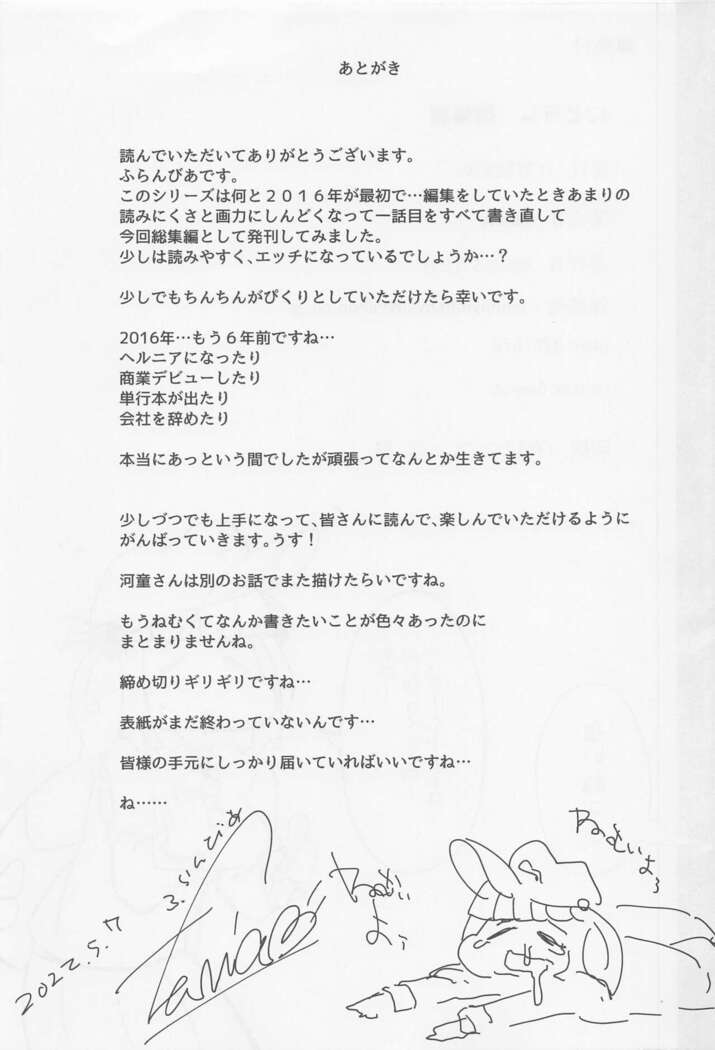 あとがき
読んでいただいてありがとうございます。
ふらんびあです。
このシリーズは何と２０１６年が最初で…編集をしていたときあまりの
読みにくさと画力にしんどくなって一話目をすべて書き直して
今回総集編として発刊してみました。
少しは読みやすく、エッチになっているでしょうか…？
少しでもちんちんがぴくりとしていただけたら幸いです。
2016年…もう６年前ですね…
ヘルニアになったり
商業デビューしたり
単行本が出たり
会社を辞めたり
本当にあっという間でしたが頑張ってなんとか生きてます。
少しづつでも上手になって、皆さんに読んで、楽しんでいただけるように
がんばっていきます。うす！
河童さんは別のお話でまた描けたらいですね。
もうねむくてなんか書きたいことが色々あったのに
まとまりませんね。
締め切りギリギリですね…
表紙がまだ終わっていないんです…
皆様の手元にしっかり届いていればいいですね…
ね……
ふらんびあ
2022.5.7
ねむい
よぅ
ねむいよぅ